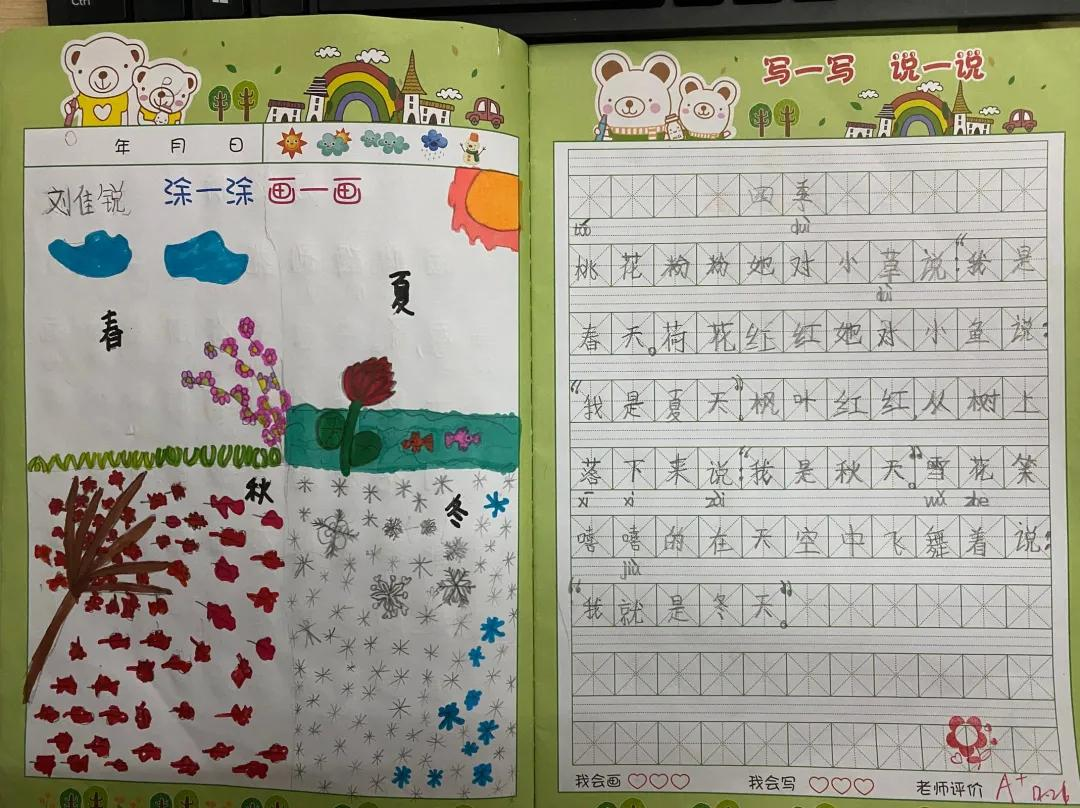 Ctrl
年 月 日
刘佳锐 涂一涂 画一画
春
夏
秋
冬
写一写 说一说
四季
táo duì
桃花粉粉她对小草说:“我是
duì
春天。荷花红红她对小鱼说:
“我是夏天”。枫叶红红,从树上
落下来说:“我是秋天”。雪花笑
xī xi zài wǔ zhe
嘻嘻的在天空中飞舞着说:
jiù
“我就是冬天”。
我会画 我会写 老师评价 A+